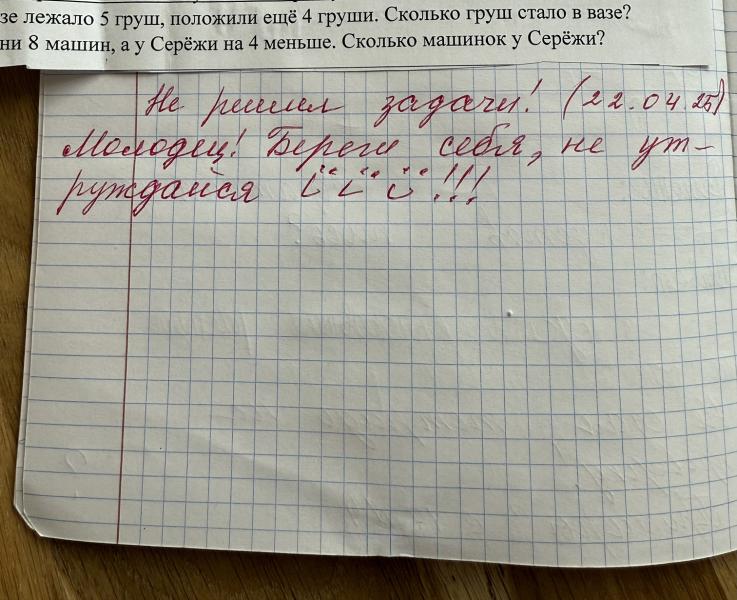 зе лежало 5 груш, положили ещё 4 груши. Сколько груш стало в вазе?
ни 8 машин, а у Серёжи на 4 меньше. Сколько машинок у Серёжи?
Не решил задачи! (22.04.25)
Молодец! Береги себя, не ут-
руждайся !!!